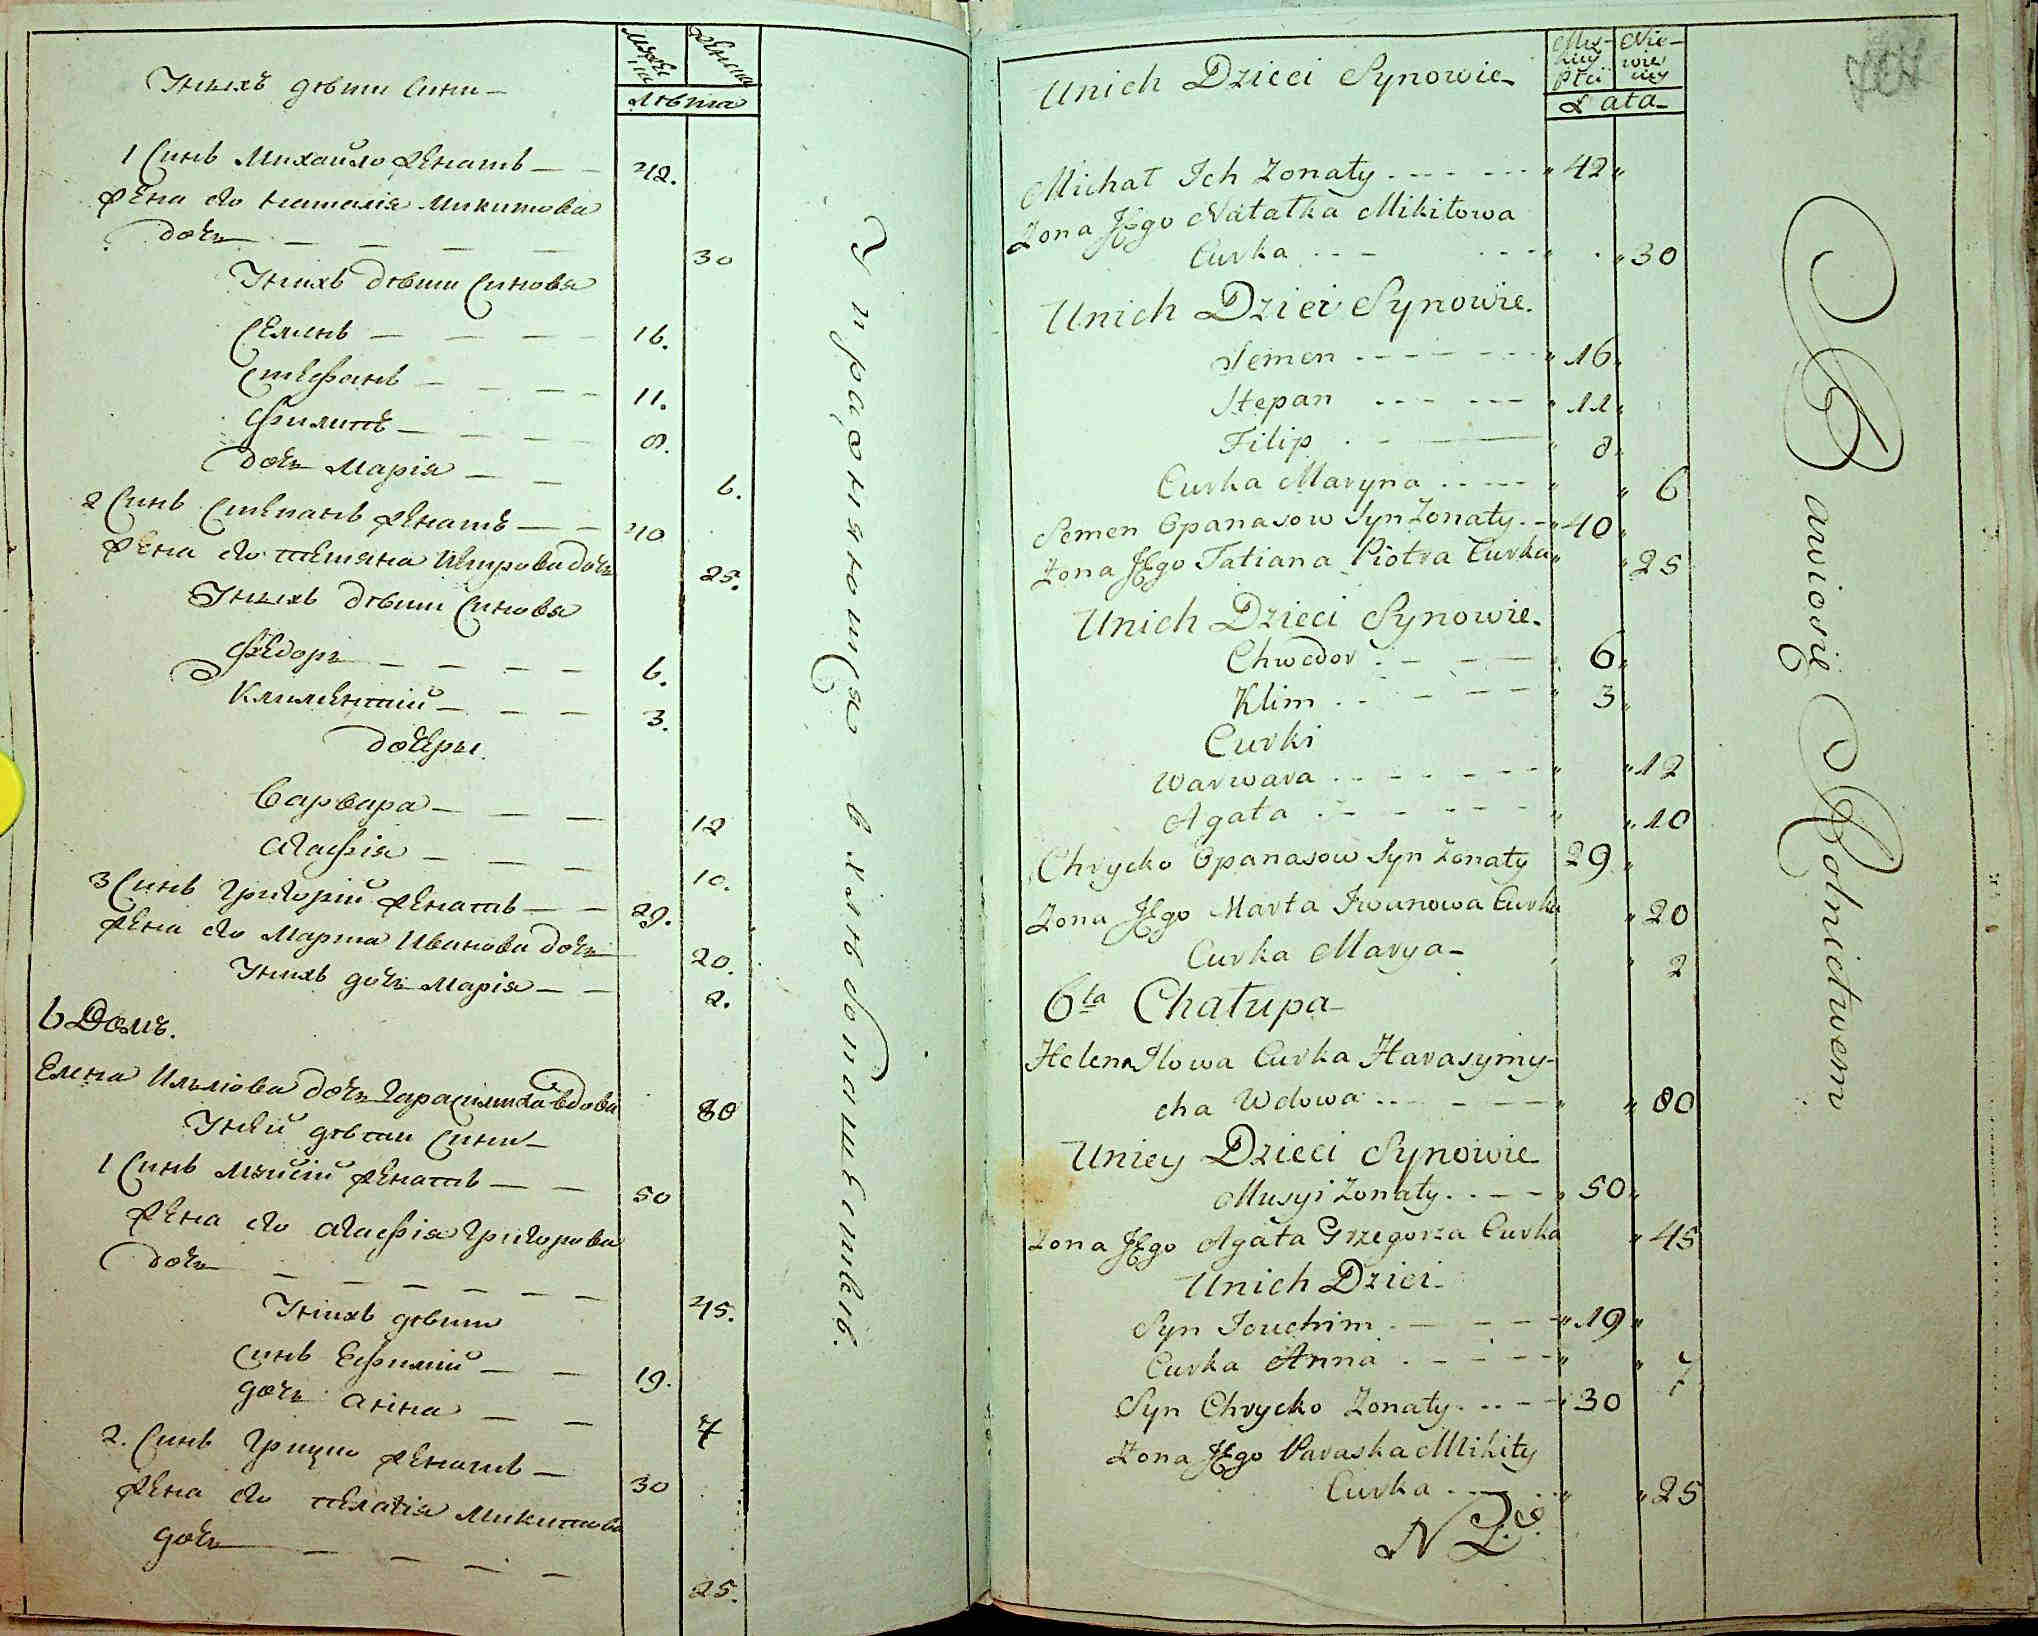 Унихъ дѣти Сини
Мужеска
Женска
Лѣта
1 Синъ Михайло Женатъ 42.
Жена его Наталія Микитова
дочь 30
Унихъ дѣти Синовя
Семенъ 16.
Стефанъ 11.
Филипъ 8.
дочь Марія 6.
2 Синъ Степанъ Женатъ 40
Жена его Тетяна Петрова дочь 25.
Унихъ дѣти Синовя
Федоръ 6.
Климентий 3.
дочеры
Варвара 12
Агафія 10.
3 Синъ Григорій Женатъ 29.
Жена его Марта Иванова дочь 20.
Унихъ дочь Марія 2.
6 Домъ.
Елена Ильіова дочь Гарасимиха вдова 80
Уней дѣти Сини
1 Синъ Мусій Женатъ 50
Жена его Агафія Григорова
дочь 45.
Унихъ дѣти
Синъ Ефимій 19.
дочь Анна 7
2. Синъ Грицко Женатъ 30
Жена его Пелагія Микитова
дочь 25.
Упражняютця в хлѣбопашествѣ.
Unich Dzieci Synowie
Męz-
kiey
Płci
Nie-
wie
ciey
Lata
Michał Ich Zonaty 42
Zona Jego Natałka Mikitowa
Curka 30
Unich Dzieci Synowie.
Semen 16
Stepan 11
Filip 8
Curka Maryna 6
Semen Opanasow Syn Zonaty 40
Zona Jego Tatiana Piotra Curka 25
Unich Dzieci Synowie.
Chwedor 6
Klim 3
Curki
Warwara 12
Agata 10
Chrycko Opanasow Syn Zonaty 29
Zona Jego Marta Iwanowa Curka 20
Curka Marya 2
6ta Chałupa
Helena Ilowa Curka Harasymy-
cha Wdowa 80
Uniey Dzieci Synowie
Musyi Zonaty 50
Zona Jego Agata Grzegorza Curka 45
Unich Dzieci
Syn Jouchim 19
Curka Anna 7
Syn Chrycko Zonaty 30
Zona Jego Paraska Mikity
Curka 25
Bawiosię Rolnictwem